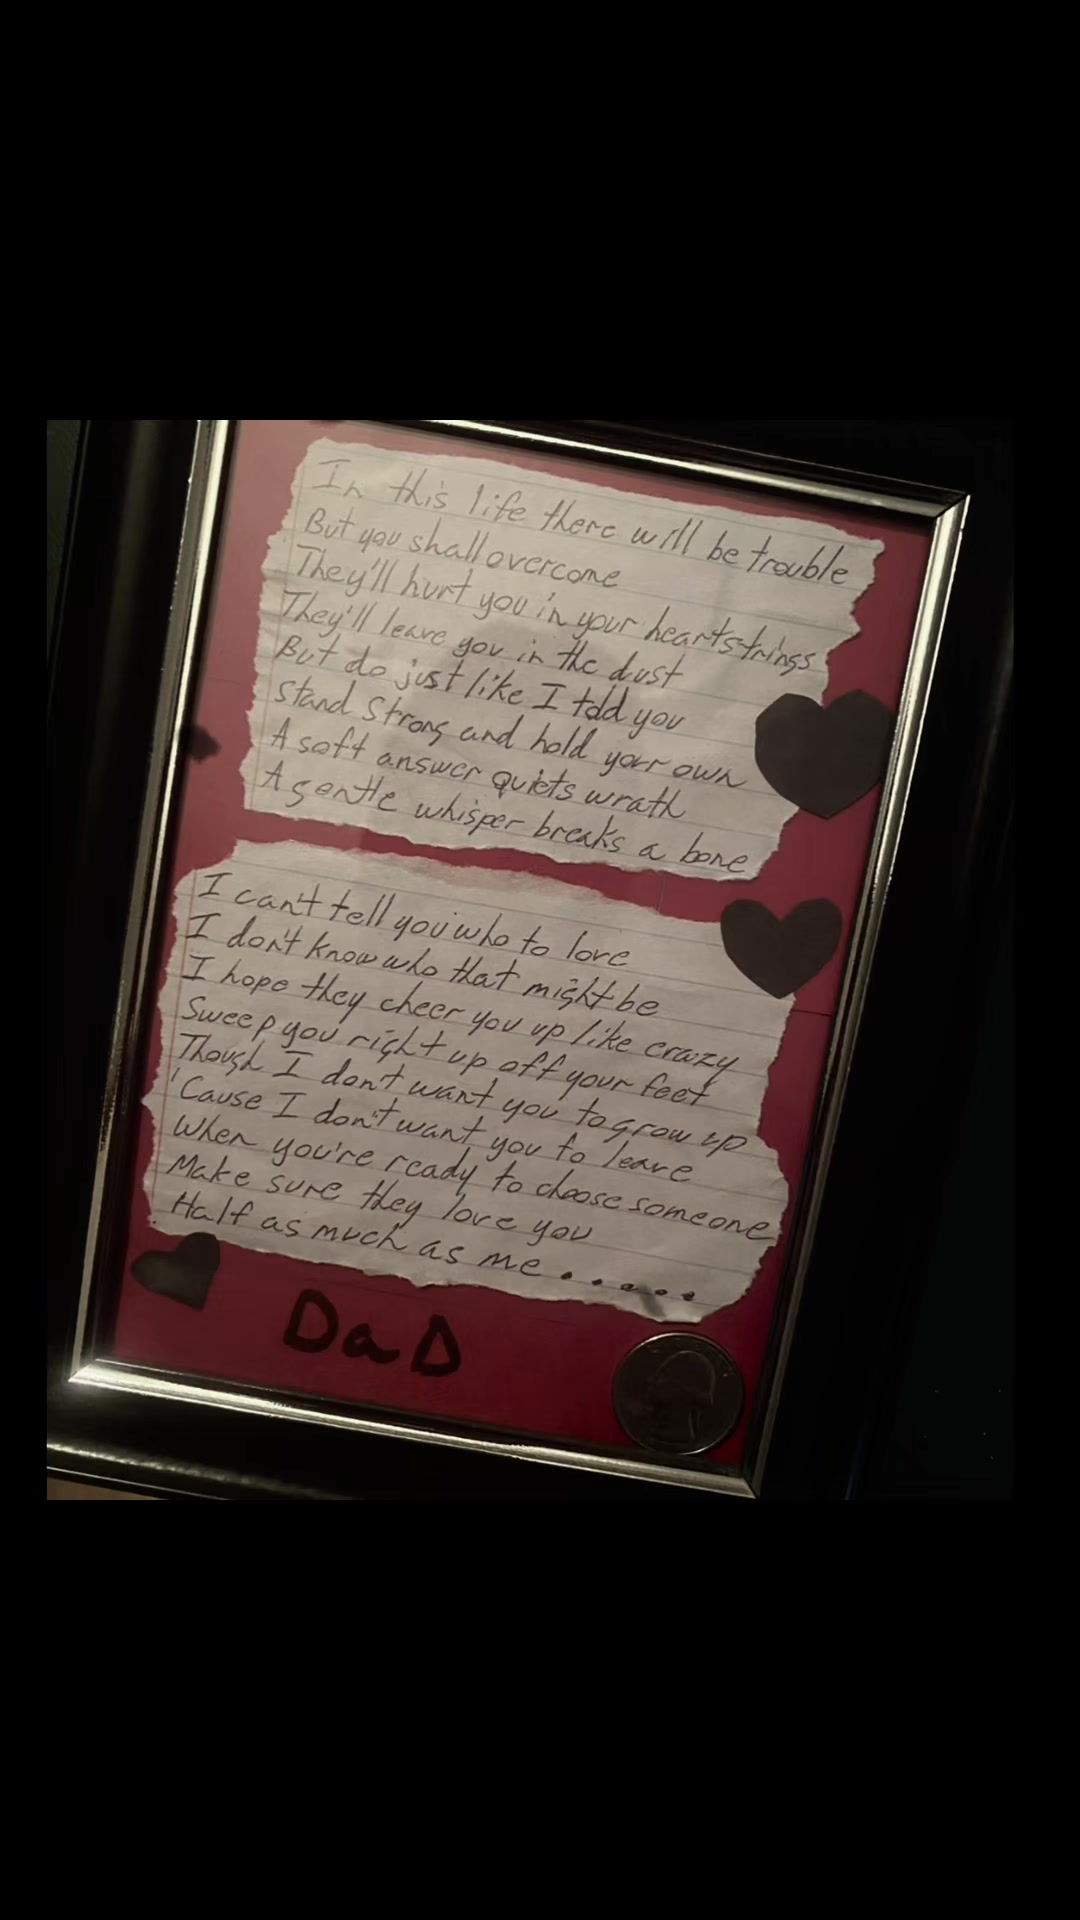 In this life there will be trouble
But you shall overcome
They'll hurt you in your heartstrings
They'll leave you in the dust
But do just like I told you
Stand strong and hold your own
A soft answer quiets wrath
A gentle whisper breaks a bone
I can't tell you who to love
I don't know who that might be
I hope they cheer you up like crazy
Sweep you right up off your feet
Though I don't want you to grow up
'Cause I don't want you to leave
When you're ready to choose someone
Make sure they love you
Half as much as me.....
DaD